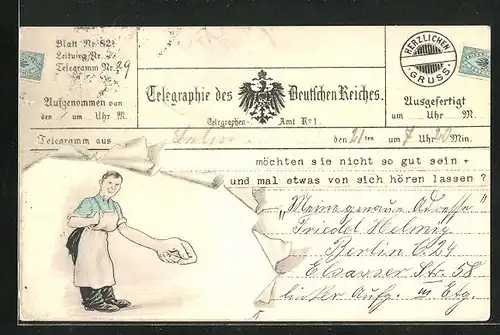 Blatt Nr. 821
Leitung Nr.
Telegramm Nr. 29
Aufgenommen von
den um Uhr M.
Telegraphie des Deutschen Reiches.
Telegraphen- Amt No 1.
HERZLICHEN GRUSS.
Ausgefertigt
um Uhr M.
Telegramm aus den 21ten um 7 Uhr 20 Min.
möchten sie nicht so gut sein -
und mal etwas von sich hören lassen?
"Meine genaue Adresse"
Friedel Helmig
Berlin C. 24
Elsasser Str. 58
linker Aufg. III Etg.